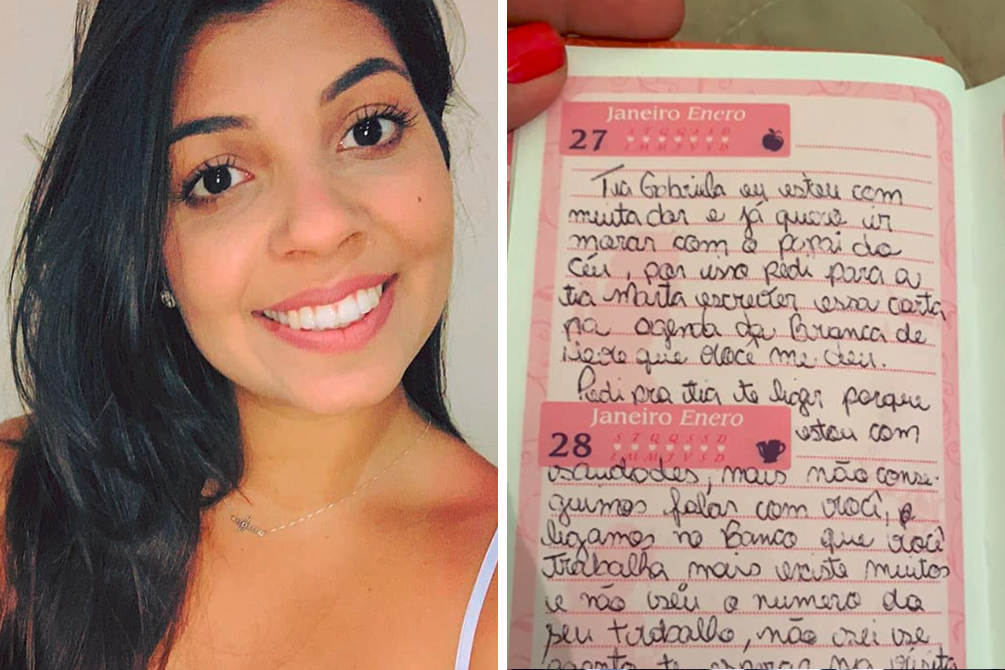 Janeiro Enero
27 S T Q Q S S D
L M M J V S D
Tia Gabriela eu estou com
muita dor e já quero ir
morar com o papai do
céu, por isso pedi para a
tia Marta escrever essa carta
na agenda da Branca de
Neve que você me deu.
Pedi pra tia te ligar porque
Janeiro Enero
28 S T Q Q S S D
L M M J V S D
estou com
saudades, mais não conse-
guimos falar com você, e
ligamos no Banco que você
Trabalha mais existe muitos
e não sei o numero do
seu trabalho, não sei se
aguento te esperar na visita